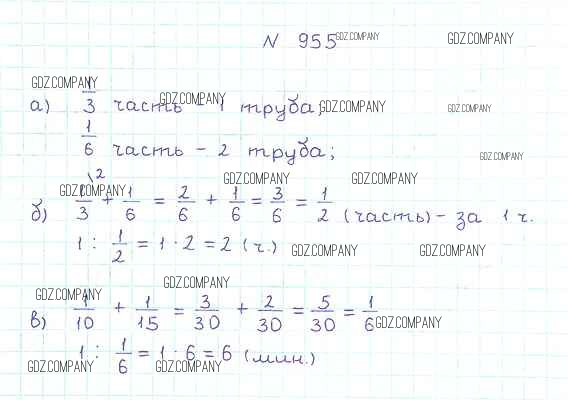 N 955 GDZ.COMPANY GDZ.COMPANY
GDZ.COMPANY
а) 1/3 часть - 1 труба; GDZ.COMPANY GDZ.COMPANY GDZ.COMPANY
1/6 часть - 2 труба; GDZ.COMPANY
GDZ.COMPANY GDZ.COMPANY GDZ.COMPANY
б) 1/3 \2 + 1/6 = 2/6 + 1/6 = 3/6 = 1/2 (часть) - за 1 ч.
1 : 1/2 = 1 · 2 = 2 (ч.) GDZ.COMPANY GDZ.COMPANY
GDZ.COMPANY GDZ.COMPANY
в) 1/10 + 1/15 = 3/30 + 2/30 = 5/30 = 1/6 GDZ.COMPANY
1 : 1/6 = 1 · 6 = 6 (мин.)
GDZ.COMPANY GDZ.COMPANY